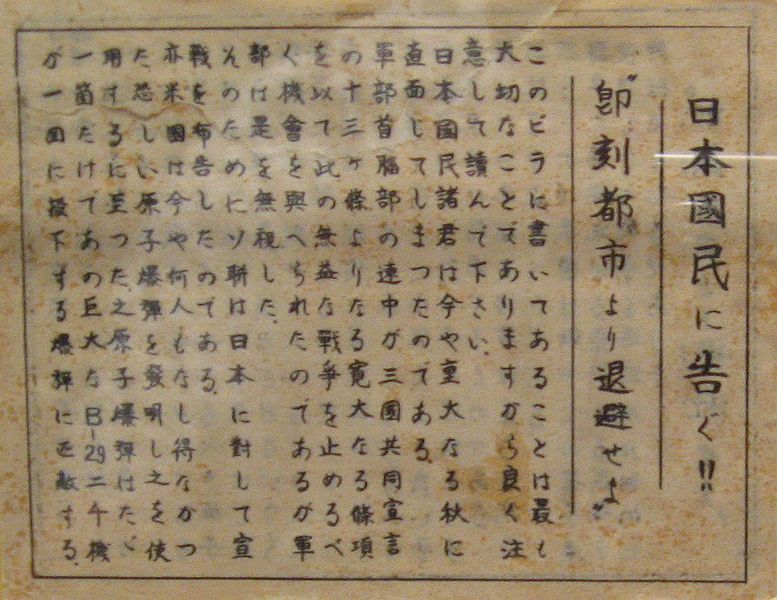 日本國民に告ぐ!!
"卽刻都市より退避せよ"
このビラに書いてあることは最も
大切なことでありますから良く注
意して讀んで下さい、
日本國民諸君は今や重大なる秋に
直面してしまつたのである
軍部首腦部の連中が三國共同宣言
の十三ヶ條よりなる寛大なる條項
を以て此の無益な戰爭を止めるべ
く機會を與へられたのであるが軍
部は是を無視した、
そのためにソ聯は日本に對して宣
戰を布告したのである、
亦米國は今や何人もなし得なかつ
た恐しい原子爆彈を發明し之を使
用するに至つた之原子爆彈はたゞ
一箇だけであの巨大なB-29二千機
が一回に投下する爆彈に匹敵する、